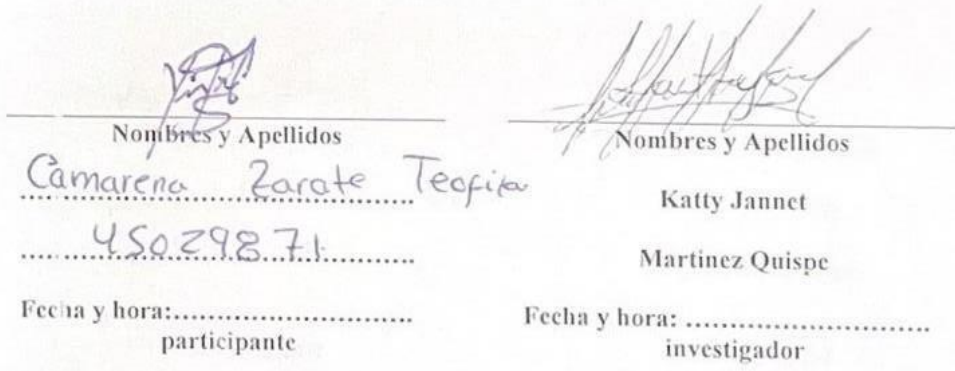 Nombres y Apellidos
Camarena Zarate Teofila
45029871.
Fecha y hora:..............................
participante
Nombres y Apellidos
Katty Jannet
Martinez Quispe
Fecha y hora: ..............................
investigador